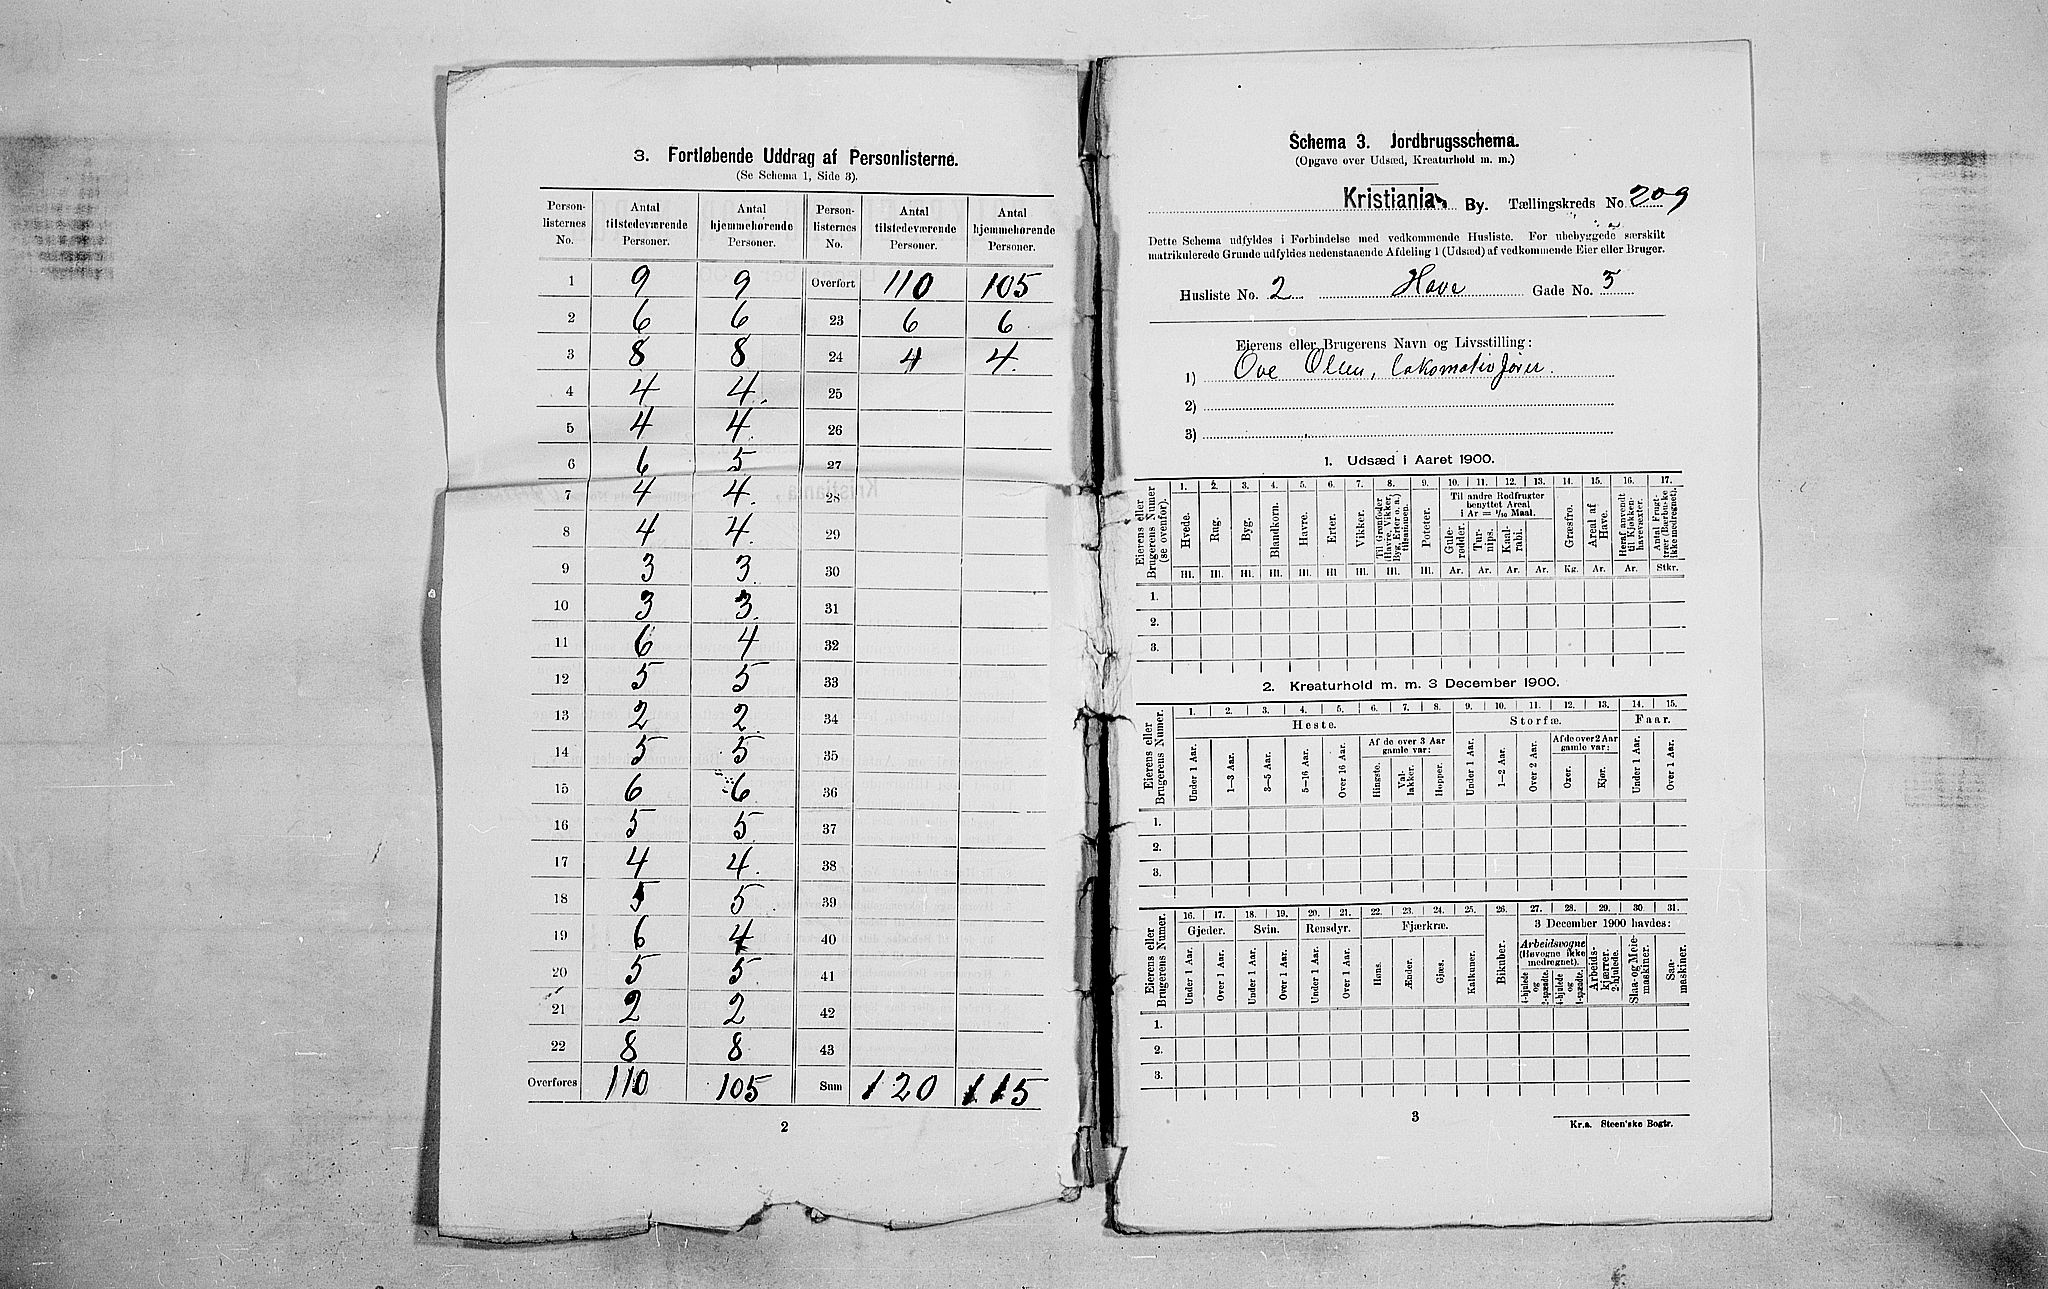 3. Fortløbende Uddrag af Personlisterne.
(Se Schema 1, Side 3).
Person-listernes No. Antal tilstedeværende Personer. Antal hjemmehørende Personer. Person-listernes No. Antal tilstedeværende Personer. Antal hjemmehørende Personer.
1 9 9 Overført 110 105
2 6 6 23 6 6
3 8 8 24 4 4
4 4 4 25
5 4 4 26
6 6 5 27
7 4 4 28
8 4 4 29
9 3 3 30
10 3 3 31
11 6 4 32
12 5 5 33
13 2 2 34
14 5 5 35
15 6 6 36
16 5 5 37
17 4 4 38
18 5 5 39
19 6 4 40
20 5 5 41
21 2 2 42
22 8 8 43
Overføres 110 105 Sum 120 115
2
Schema 3. Jordbrugsschema.
(Opgave over Udsæd, Kreaturhold m. m.)
Kristiania By. Tællingskreds No. 209
Dette Schema udfyldes i Forbindelse med vedkommende Husliste. For ubebyggede særskilt
matrikulerede Grunde udfyldes nedenstaaende Afdeling 1 (Udsæd) af vedkommende Eier eller Bruger.
Husliste No. 2 Have Gade No. 5
Eierens eller Brugerens Navn og Livsstilling:
1) Ove Olsen, Lokomotivfører.
2)
3)
1. Udsæd i Aaret 1900.
Eierens eller Brugerens Numer (se ovenfor).
1. 2. 3. 4. 5. 6. 7. 8. 9. 10. 11. 12. 13. 14. 15. 16. 17.
Hvede. Rug. Byg. Blandkorn. Havre. Erter. Vikker. Til Grønfoder (Havre, Vikker, Byg, Erter o. a.) tilsammen. Poteter. Til andre Rodfrugter benyttet Areal i Ar = 1/10 Maal. Gule-rødder. Tur-nips. Kaal-rabi. Græsfrø. Areal af Have. Heraf anvendt til Kjøkken-havevæxter. Antal Frugt-trær (Bærbuske ikke medregnet).
Hl. Hl. Hl. Hl. Hl. Hl. Hl. Hl. Hl. Ar. Ar. Ar. Ar. Kg. Ar. Ar. Stkr.
1.
2.
3.
2. Kreaturhold m. m. 3 December 1900.
Eierens eller Brugerens Numer.
1. 2. 3. 4. 5. 6. 7. 8. 9. 10. 11. 12. 13. 14. 15.
Heste. Storfæ. Faar.
Af de over 3 Aar gamle var: Af de over 2 Aar gamle var:
Under 1 Aar. 1—3 Aar. 3—5 Aar. 5—16 Aar. Over 16 Aar. Hingste. Val-lakker. Hopper. Under 1 Aar. 1—2 Aar. Over 2 Aar. Oxer. Kjør. Under 1 Aar. Over 1 Aar.
1.
2.
3.
Eierens eller Brugerens Numer.
16. 17. 18. 19. 20. 21. 22. 23. 24. 25. 26. 27. 28. 29. 30. 31.
Gjeder. Svin. Rensdyr. Fjærkræ. 3 December 1900 havdes:
Under 1 Aar. Over 1 Aar. Under 1 Aar. Over 1 Aar. Under 1 Aar. Over 1 Aar. Høns. Ænder. Gjæs. Kalkuner. Bikuber. Arbeidsvogne (Høvogne ikke medregnet). 4-hjulede og 2-spændte. 4-hjulede og 1-spændte. Arbeids-kjærrer, 2-hjulede. Slaa- og Meie-maskiner. Saa-maskiner.
1.
2.
3.
3
Kr.a. Steen'ske Bogtr.